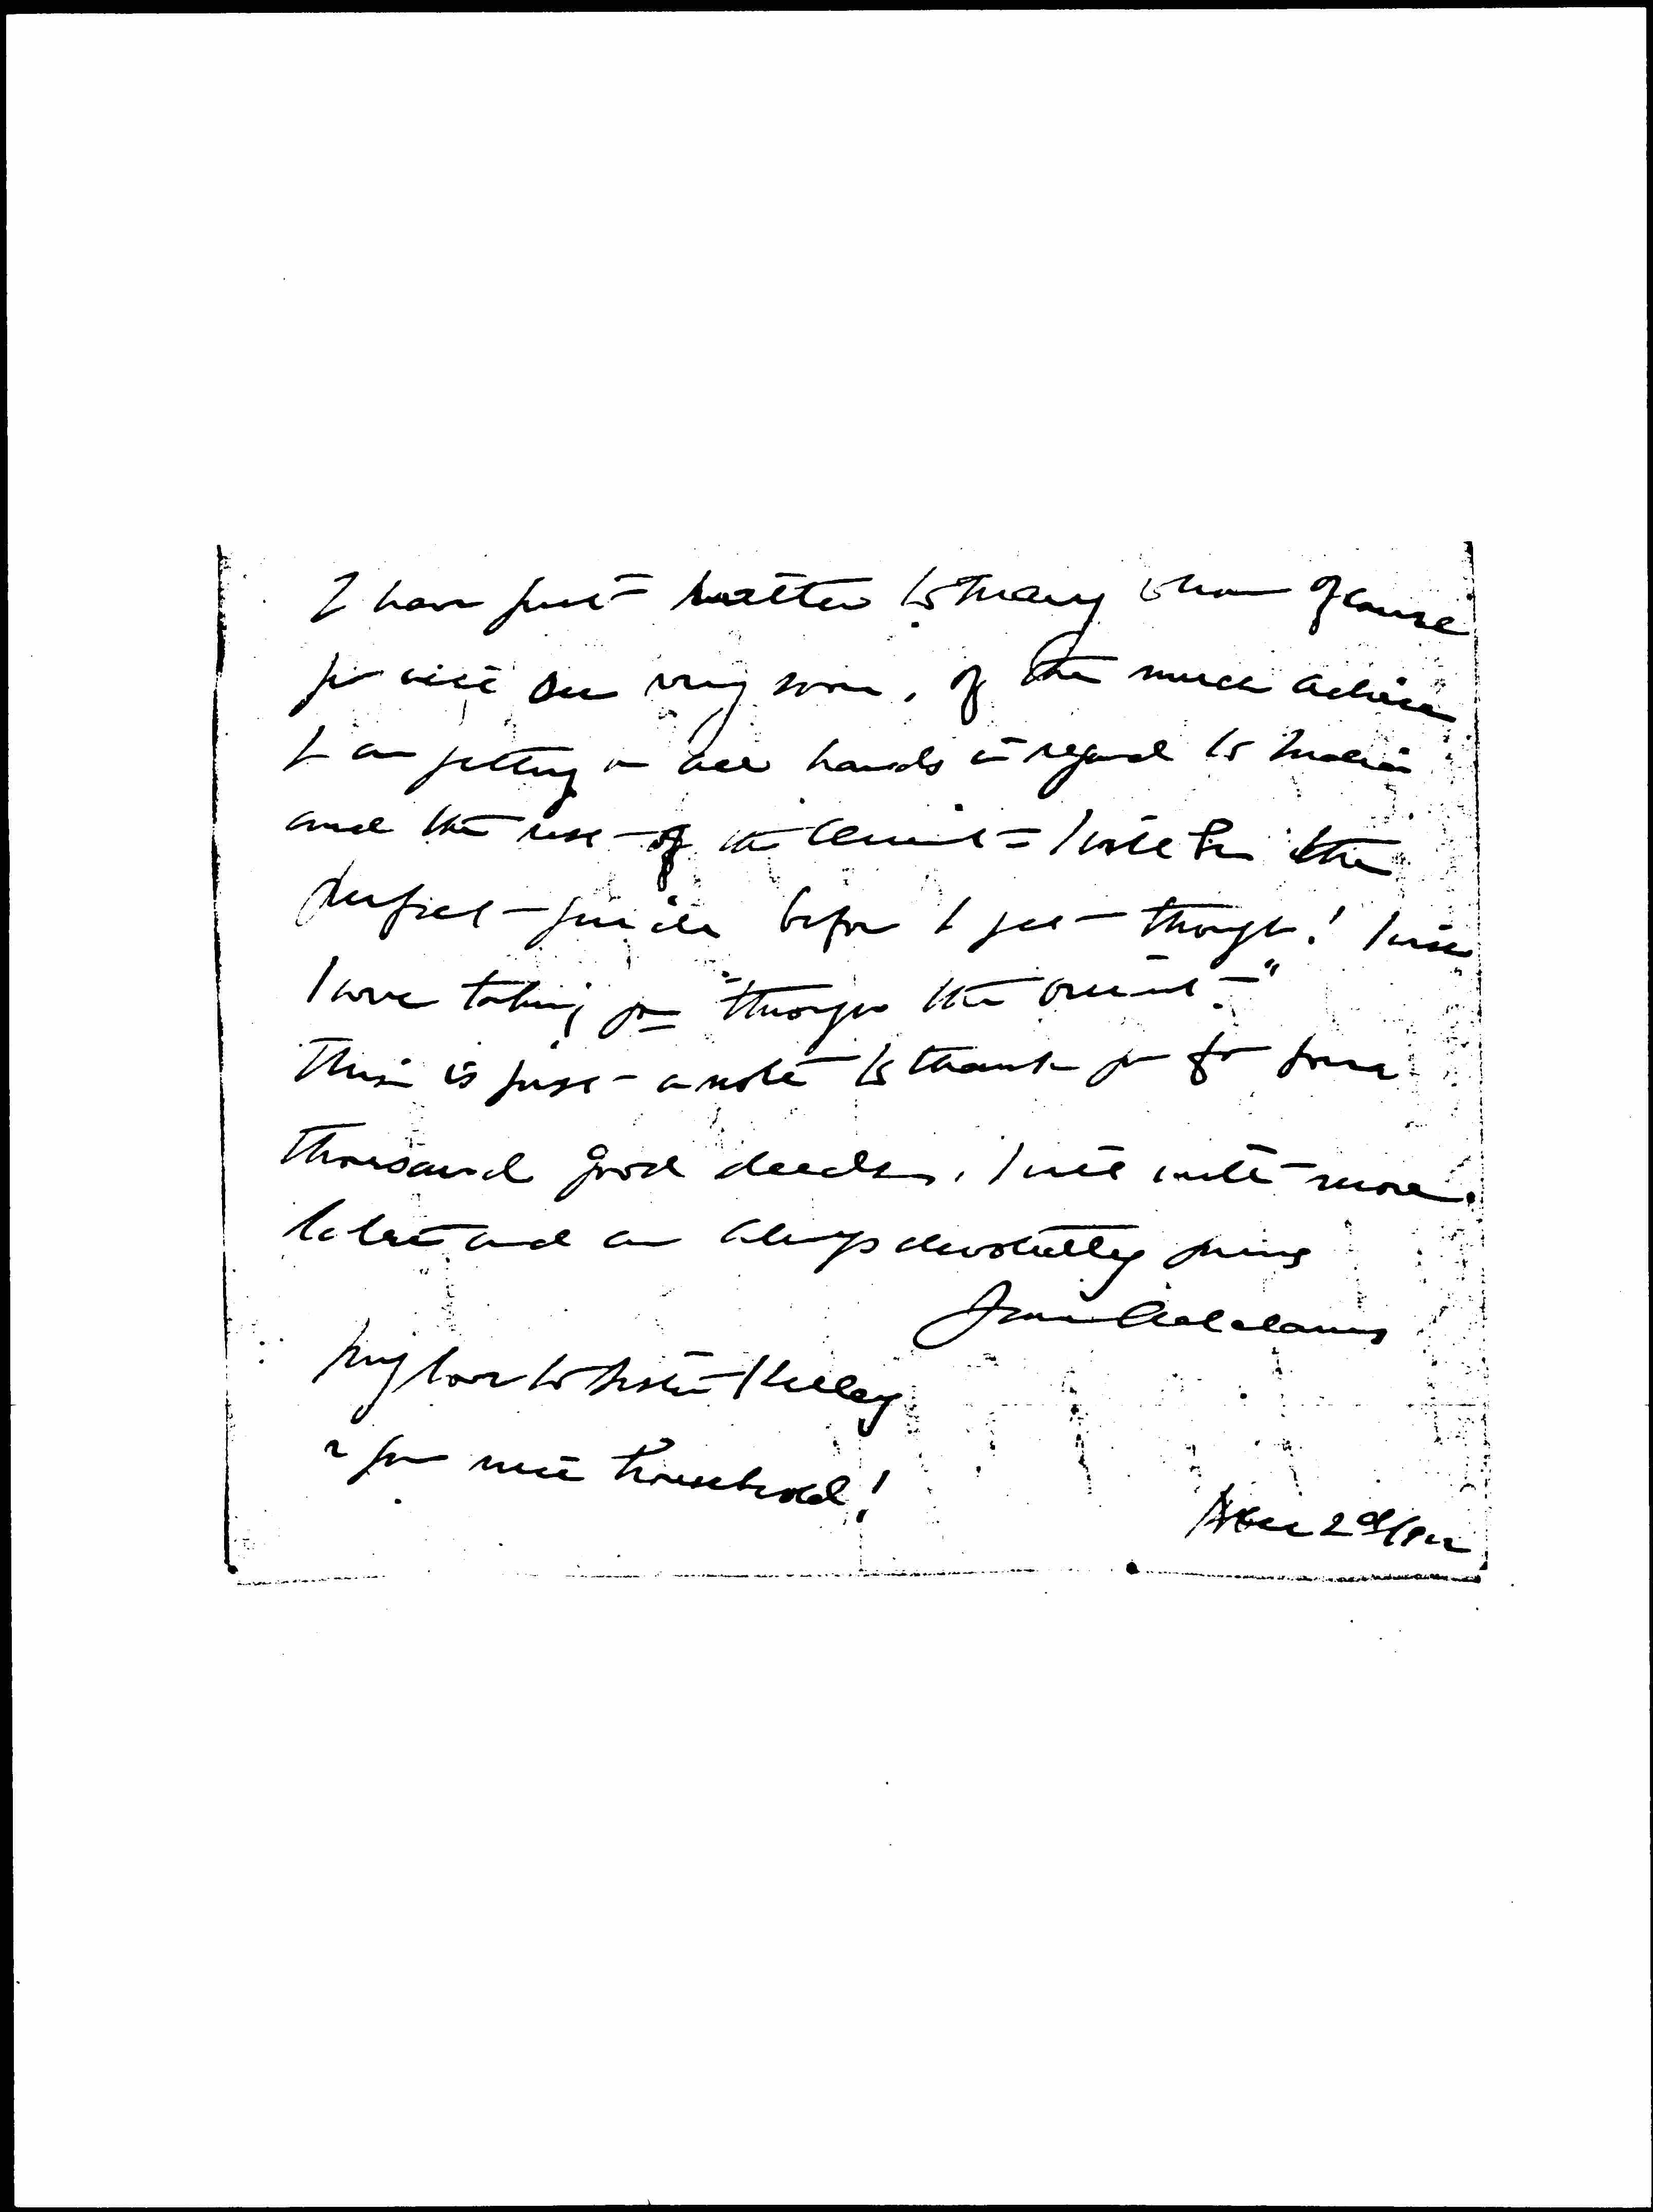 I have just written to Mary whom of course
you will see very soon, of the much advice
I am getting on all hands in regard to India
and the rest of the Orient - I will be the
perfect guide before I get through! I wish
I were taking you "through the Orient"
This is just a note to thank you for your
thousand good deeds, I will write more
later and am always devotedly yours
Jane Addams
My love to Sister Kelley
& your nice household!